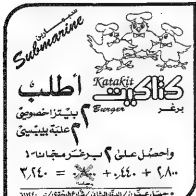 سبمارين
Submarine
Katakit
كتاكيت
Burger برغر
أطلب
٢ بيتزا خصوصي
٢ علبة بيبسي
واحصل على ٢ برغر مجانا :
٢,٨٠٠ + ٠,٤٤٠ = ٣,٢٤٠